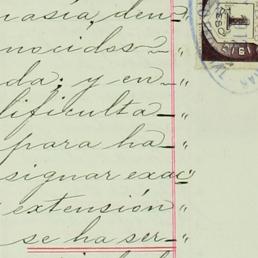 masía den-"
nocidos?-"
da: y en-"
dificulta-"
para ha-"
signar exac"
extensión-"
se ha ser-"
1
PESO